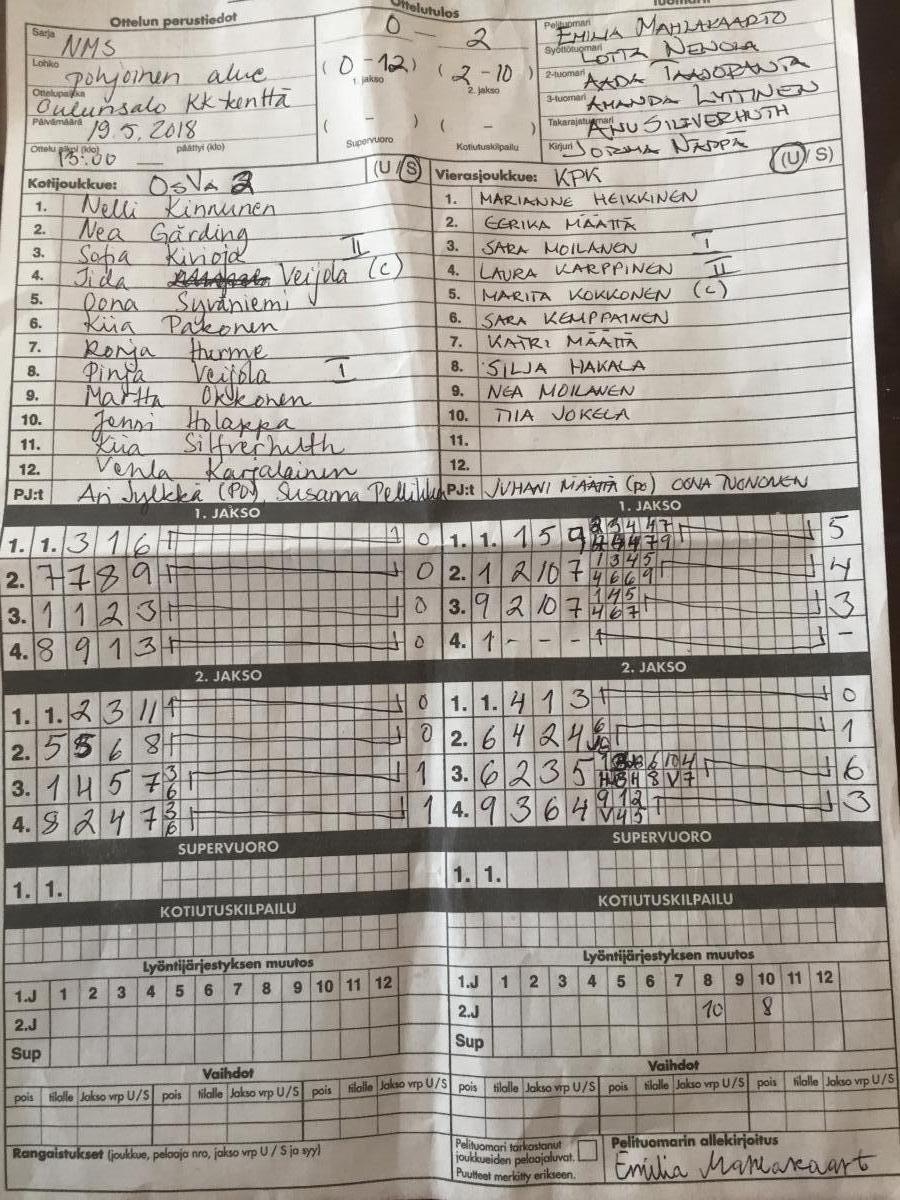 Ottelun perustiedot
Ottelutulos
Sarja NMS
0 - 2
Pelituomari EMILIA MAHLAKAARTO
Lohko pohjoinen alue
(0-12) 1. jakso (2-10) 2. jakso
Syöttötuomari LOTTA NENOLA
Ottelupaikka Oulunsalo KK-kenttä
2-tuomari AADA
Päivämäärä 19.5.2018
3-tuomari AMANDA LYTTINEN
( - ) Supervuoro ( - ) Kotiutuskilpailu
Takarajatuomari ANU SILFVERHUTH
Ottelu alkoi (klo) 13:00 päättyi (klo)
Kirjuri JORMA NÄPPÄ
Kotijoukkue: OsVa 2 (U/S)
Vierasjoukkue: KPK (U/S)
1. Nelli Kinnunen
1. MARIANNE HEIKKINEN
2. Nea Gårding
2. EERIKA MÄÄTTÄ
3. Sofia Kivioja II
3. SARA MOILANEN I
4. Iida Veijola (C)
4. LAURA KARPPINEN II
5. Oona Syväniemi
5. MARITA KOKKONEN (C)
6. Kiia Pakonen
6. SARA KEMPPAINEN
7. Ronja Hurme
7. KATRI MÄÄTTÄ
8. Pinja Veijola I
8. SILJA HAKALA
9. Martta Okkonen
9. NEA MOILANEN
10. Jenni Holappa
10. TIIA JOKELA
11. Kiia Silfverhuth
11.
12. Venla Karjalainen
12.
PJ:t Ari Jylkkä (PO), Susanna
PJ:t JUHANI MÄÄTTÄ (PO) OONA TUONONEN
1. JAKSO
1. JAKSO
1. 1. 3 1 6 1 0
1. 1. 1 5 9 5
2. 7 7 8 9 0
2. 1 2 10 7 1 3 4 5 4
4 6 6 9
3. 1 1 2 3 0
3. 9 2 10 7 1 4 5 3
4 6 7
4. 8 9 1 3 0
4. 1 - - - -
2. JAKSO
2. JAKSO
1. 1. 2 3 11 0
1. 1. 4 1 3 0
2. 5 5 6 8 0
2. 6 4 2 4 6 1
3. 1 4 5 7 3 1
6
3. 6 2 3 5 6
4. 8 2 4 7 3 1
6
4. 9 3 6 4 9 1 2 3
V 4 5
SUPERVUORO
SUPERVUORO
1. 1.
1. 1.
KOTIUTUSKILPAILU
KOTIUTUSKILPAILU
Lyöntijärjestyksen muutos
Lyöntijärjestyksen muutos
1.J 1 2 3 4 5 6 7 8 9 10 11 12
1.J 1 2 3 4 5 6 7 8 9 10 11 12
2.J
2.J 10 8
Sup
Sup
Vaihdot
Vaihdot
pois tilalle Jakso vrp U/S pois tilalle Jakso vrp U/S pois tilalle Jakso vrp U/S
pois tilalle Jakso vrp U/S pois tilalle Jakso vrp U/S pois tilalle Jakso vrp U/S
Rangaistukset (joukkue, pelaaja nro, jakso vrp U / S ja syy)
Pelituomari tarkastanut
joukkueiden pelaajaluvat.
Puutteet merkitty erikseen.
Pelituomarin allekirjoitus
Emilia Mahlakaarto